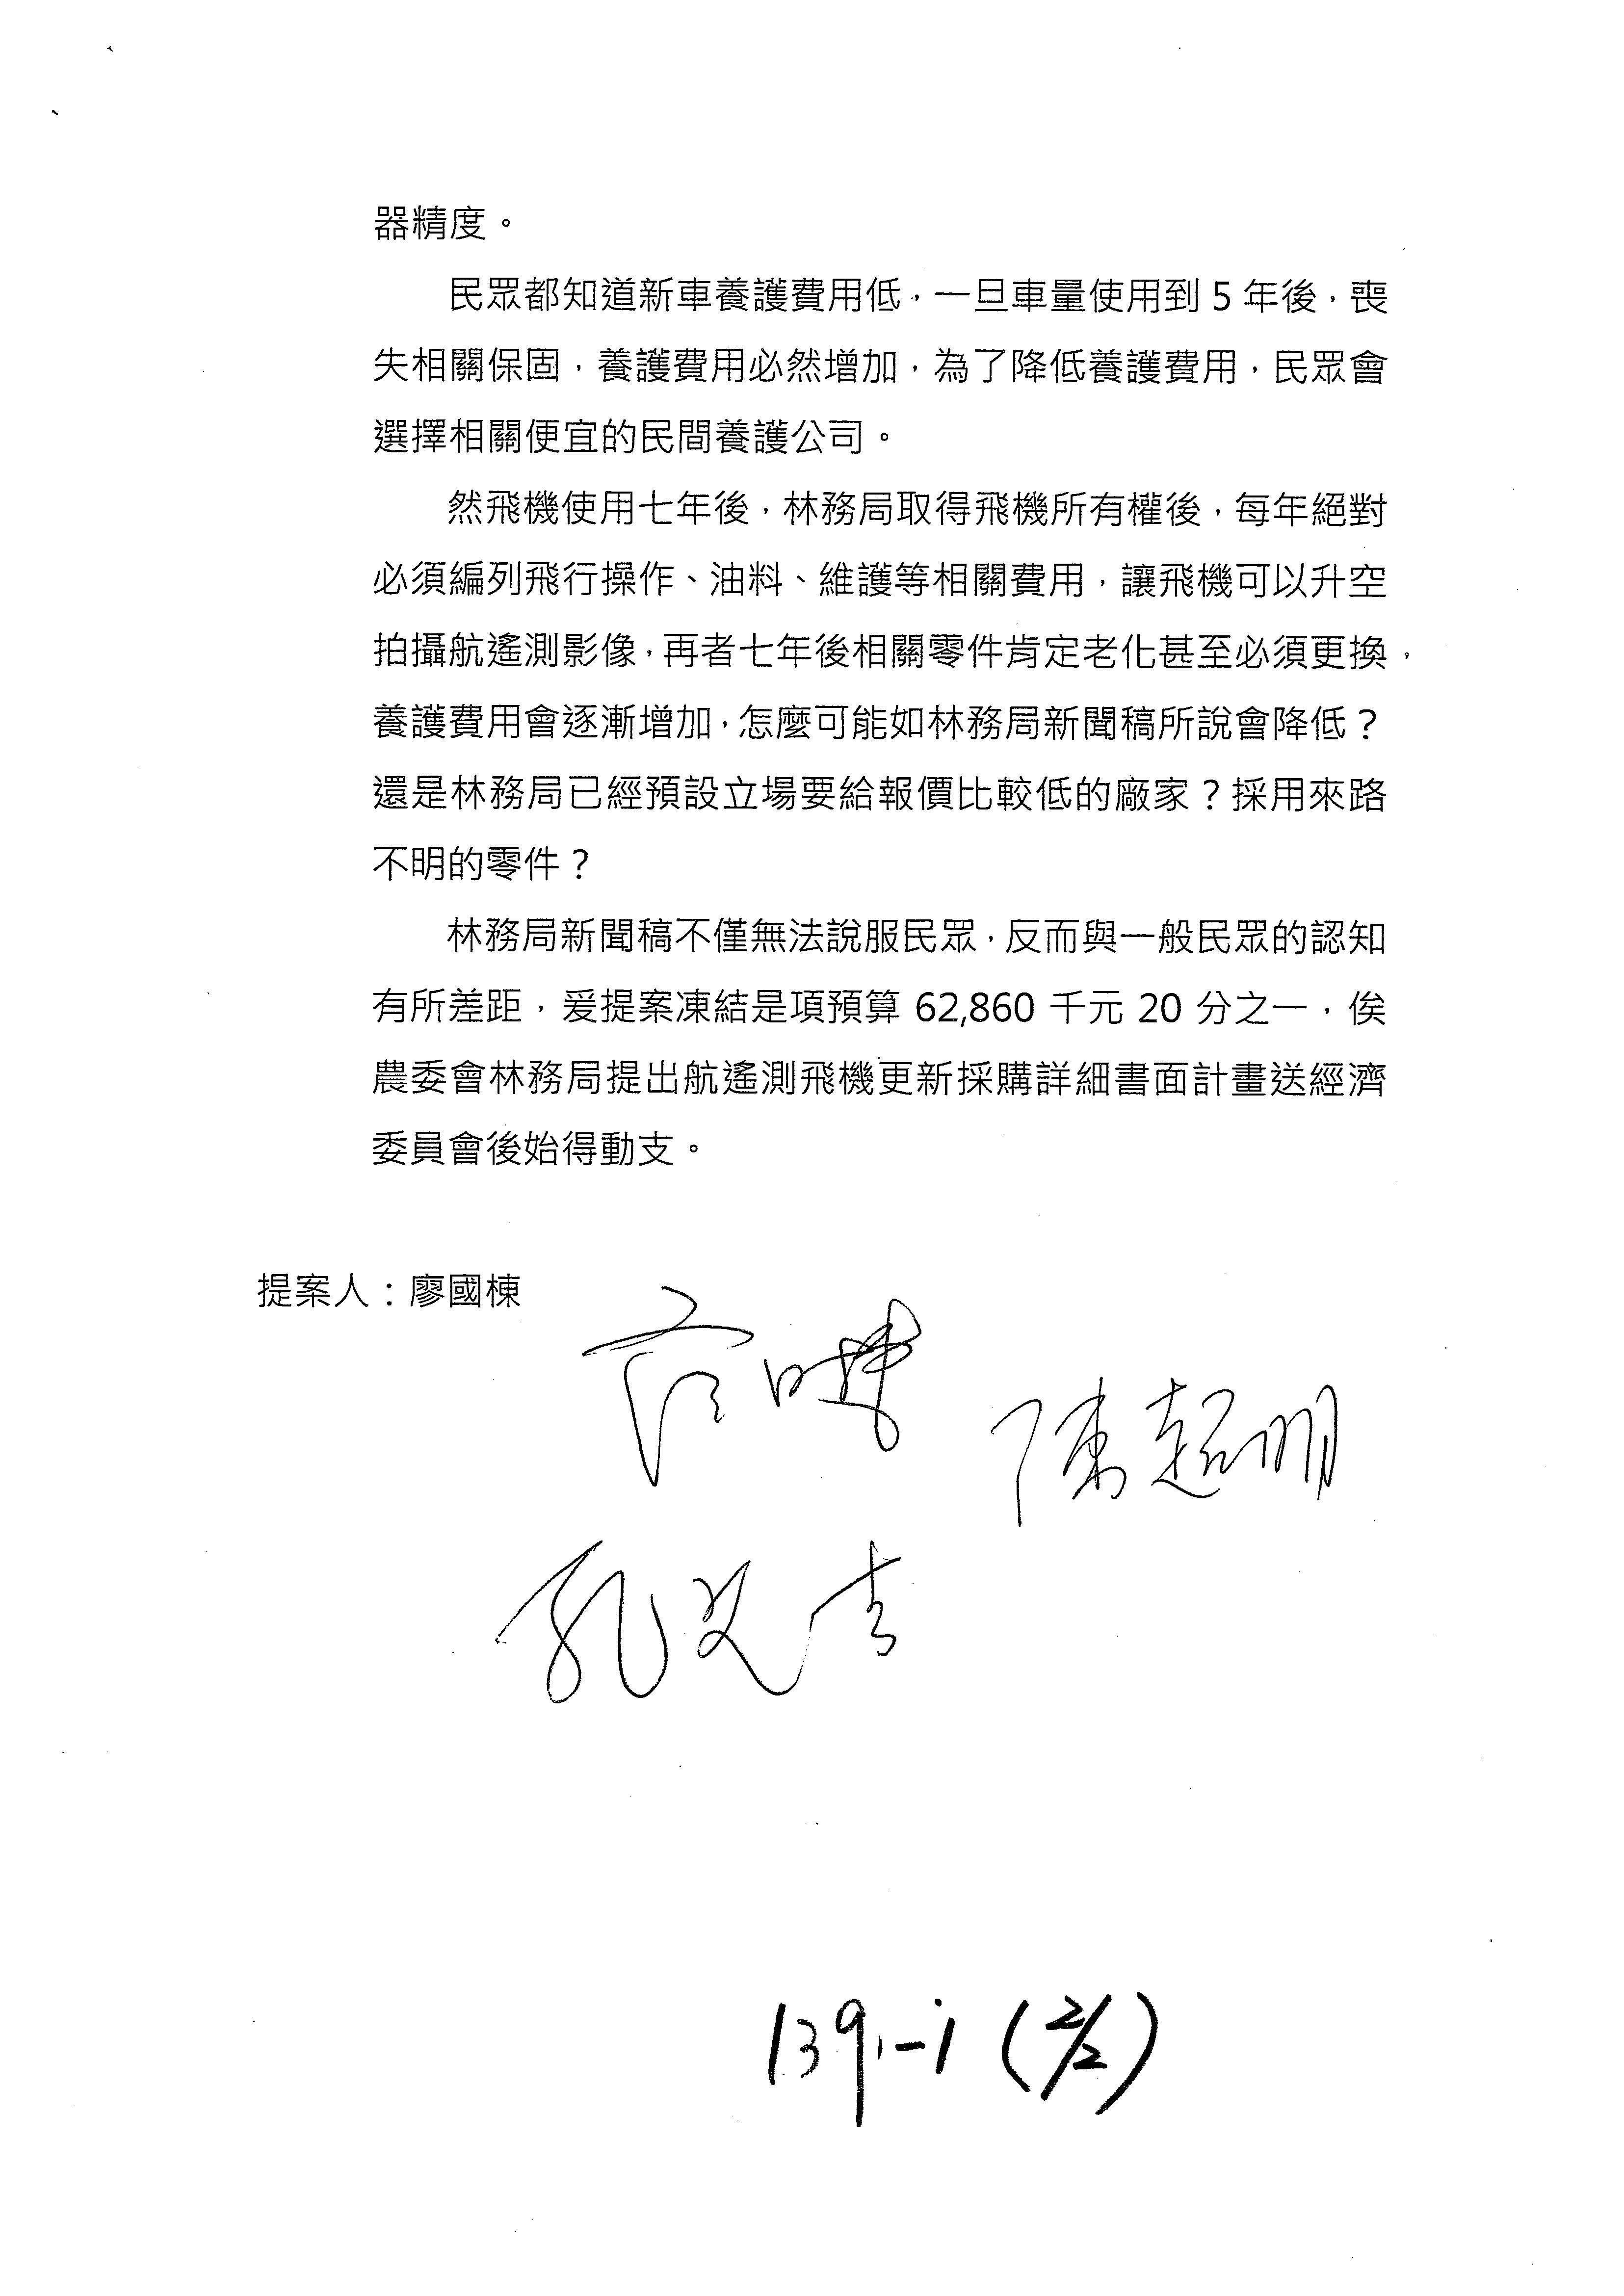 器精度。
民眾都知道新車養護費用低，一旦車量使用到 5 年後，喪
失相關保固，養護費用必然增加，為了降低養護費用，民眾會
選擇相關便宜的民間養護公司。
然飛機使用七年後，林務局取得飛機所有權後，每年絕對
必須編列飛行操作、油料、維護等相關費用，讓飛機可以升空
拍攝航遙測影像，再者七年後相關零件肯定老化甚至必須更換，
養護費用會逐漸增加，怎麼可能如林務局新聞稿所說會降低？
還是林務局已經預設立場要給報價比較低的廠家？採用來路
不明的零件？
林務局新聞稿不僅無法說服民眾，反而與一般民眾的認知
有所差距，爰提案凍結是項預算 62,860 千元 20 分之一，俟
農委會林務局提出航遙測飛機更新採購詳細書面計畫送經濟
委員會後始得動支。
提案人：廖國棟
陳超明
孔文吉
139-1 (2/2)